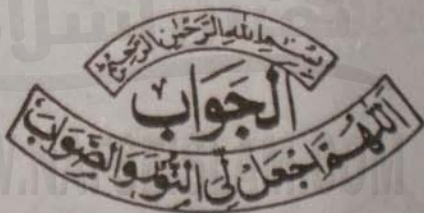 بسم اللہ الرحمٰن الرحیم
الجواب
اللّٰھم اجعل لی النور والصواب